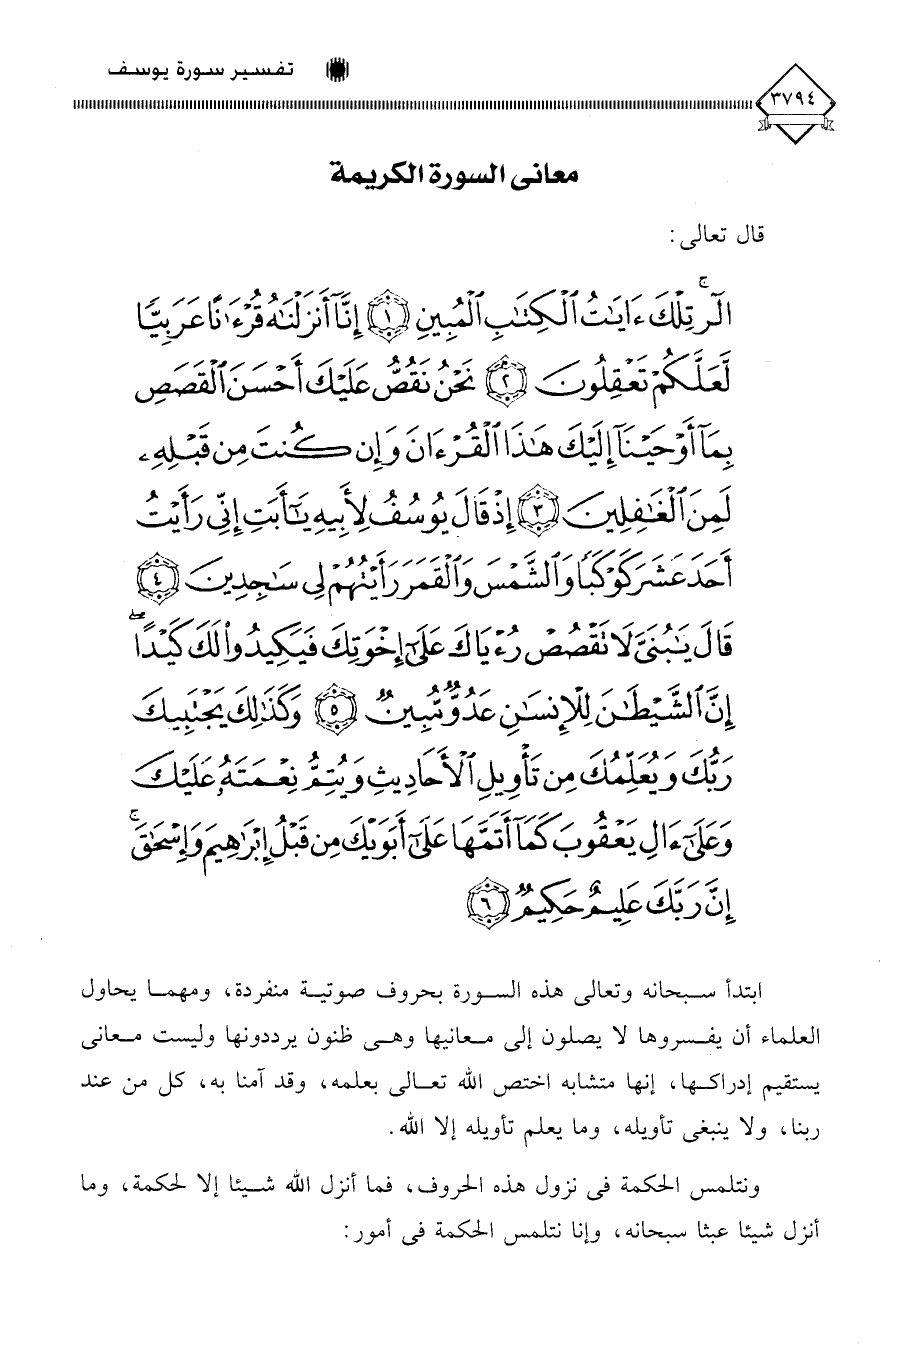 تفسير سورة يوسف
٣٧٩٤
معانى السورة الكريمة
قال تعالى:
الٓرۚ تِلۡكَ ءَايَٰتُ ٱلۡكِتَٰبِ ٱلۡمُبِينِ ١ إِنَّآ أَنزَلۡنَٰهُ قُرۡءَٰنًا عَرَبِيّٗا
لَّعَلَّكُمۡ تَعۡقِلُونَ ٢ نَحۡنُ نَقُصُّ عَلَيۡكَ أَحۡسَنَ ٱلۡقَصَصِ
بِمَآ أَوۡحَيۡنَآ إِلَيۡكَ هَٰذَا ٱلۡقُرۡءَانَ وَإِن كُنتَ مِن قَبۡلِهِۦ
لَمِنَ ٱلۡغَٰفِلِينَ ٣ إِذۡ قَالَ يُوسُفُ لِأَبِيهِ يَٰٓأَبَتِ إِنِّي رَأَيۡتُ
أَحَدَ عَشَرَ كَوۡكَبٗا وَٱلشَّمۡسَ وَٱلۡقَمَرَ رَأَيۡتُهُمۡ لِي سَٰجِدِينَ ٤
قَالَ يَٰبُنَيَّ لَا تَقۡصُصۡ رُءۡيَاكَ عَلَىٰٓ إِخۡوَتِكَ فَيَكِيدُواْ لَكَ كَيۡدًاۖ
إِنَّ ٱلشَّيۡطَٰنَ لِلۡإِنسَٰنِ عَدُوّٞ مُّبِينٞ ٥ وَكَذَٰلِكَ يَجۡتَبِيكَ
رَبُّكَ وَيُعَلِّمُكَ مِن تَأۡوِيلِ ٱلۡأَحَادِيثِ وَيُتِمُّ نِعۡمَتَهُۥ عَلَيۡكَ
وَعَلَىٰٓ ءَالِ يَعۡقُوبَ كَمَآ أَتَمَّهَا عَلَىٰٓ أَبَوَيۡكَ مِن قَبۡلُ إِبۡرَٰهِيمَ وَإِسۡحَٰقَۚ
إِنَّ رَبَّكَ عَلِيمٌ حَكِيمٞ ٦
ابتدأ سبحانه وتعالى هذه السورة بحروف صوتية منفردة، ومهما يحاول
العلماء أن يفسروها لا يصلون إلى معانيها وهى ظنون يرددونها وليست معانى
يستقيم إدراكها، إنها متشابه اختص الله تعالى بعلمه، وقد آمنا به، كل من عند
ربنا، ولا ينبغى تأويله، وما يعلم تأويله إلا الله.
ونتلمس الحكمة فى نزول هذه الحروف، فما أنزل الله شيئا إلا لحكمة، وما
أنزل شيئا عبثا سبحانه، وإنا نتلمس الحكمة فى أمور: